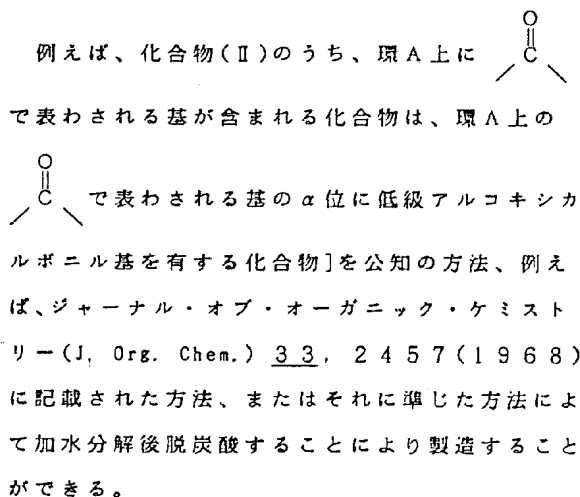 例えば、化合物(Ⅱ)のうち、環A上に
O
C
で表わされる基が含まれる化合物は、環A上の
O
C
で表わされる基のα位に低級アルコキシカ
ルボニル基を有する化合物]を公知の方法、例え
ば、ジャーナル・オブ・オーガニック・ケミスト
リー(J, Org. Chem.) 33, 2457(1968)
に記載された方法、またはそれに準じた方法によ
て加水分解後脱炭酸することにより製造すること
ができる。